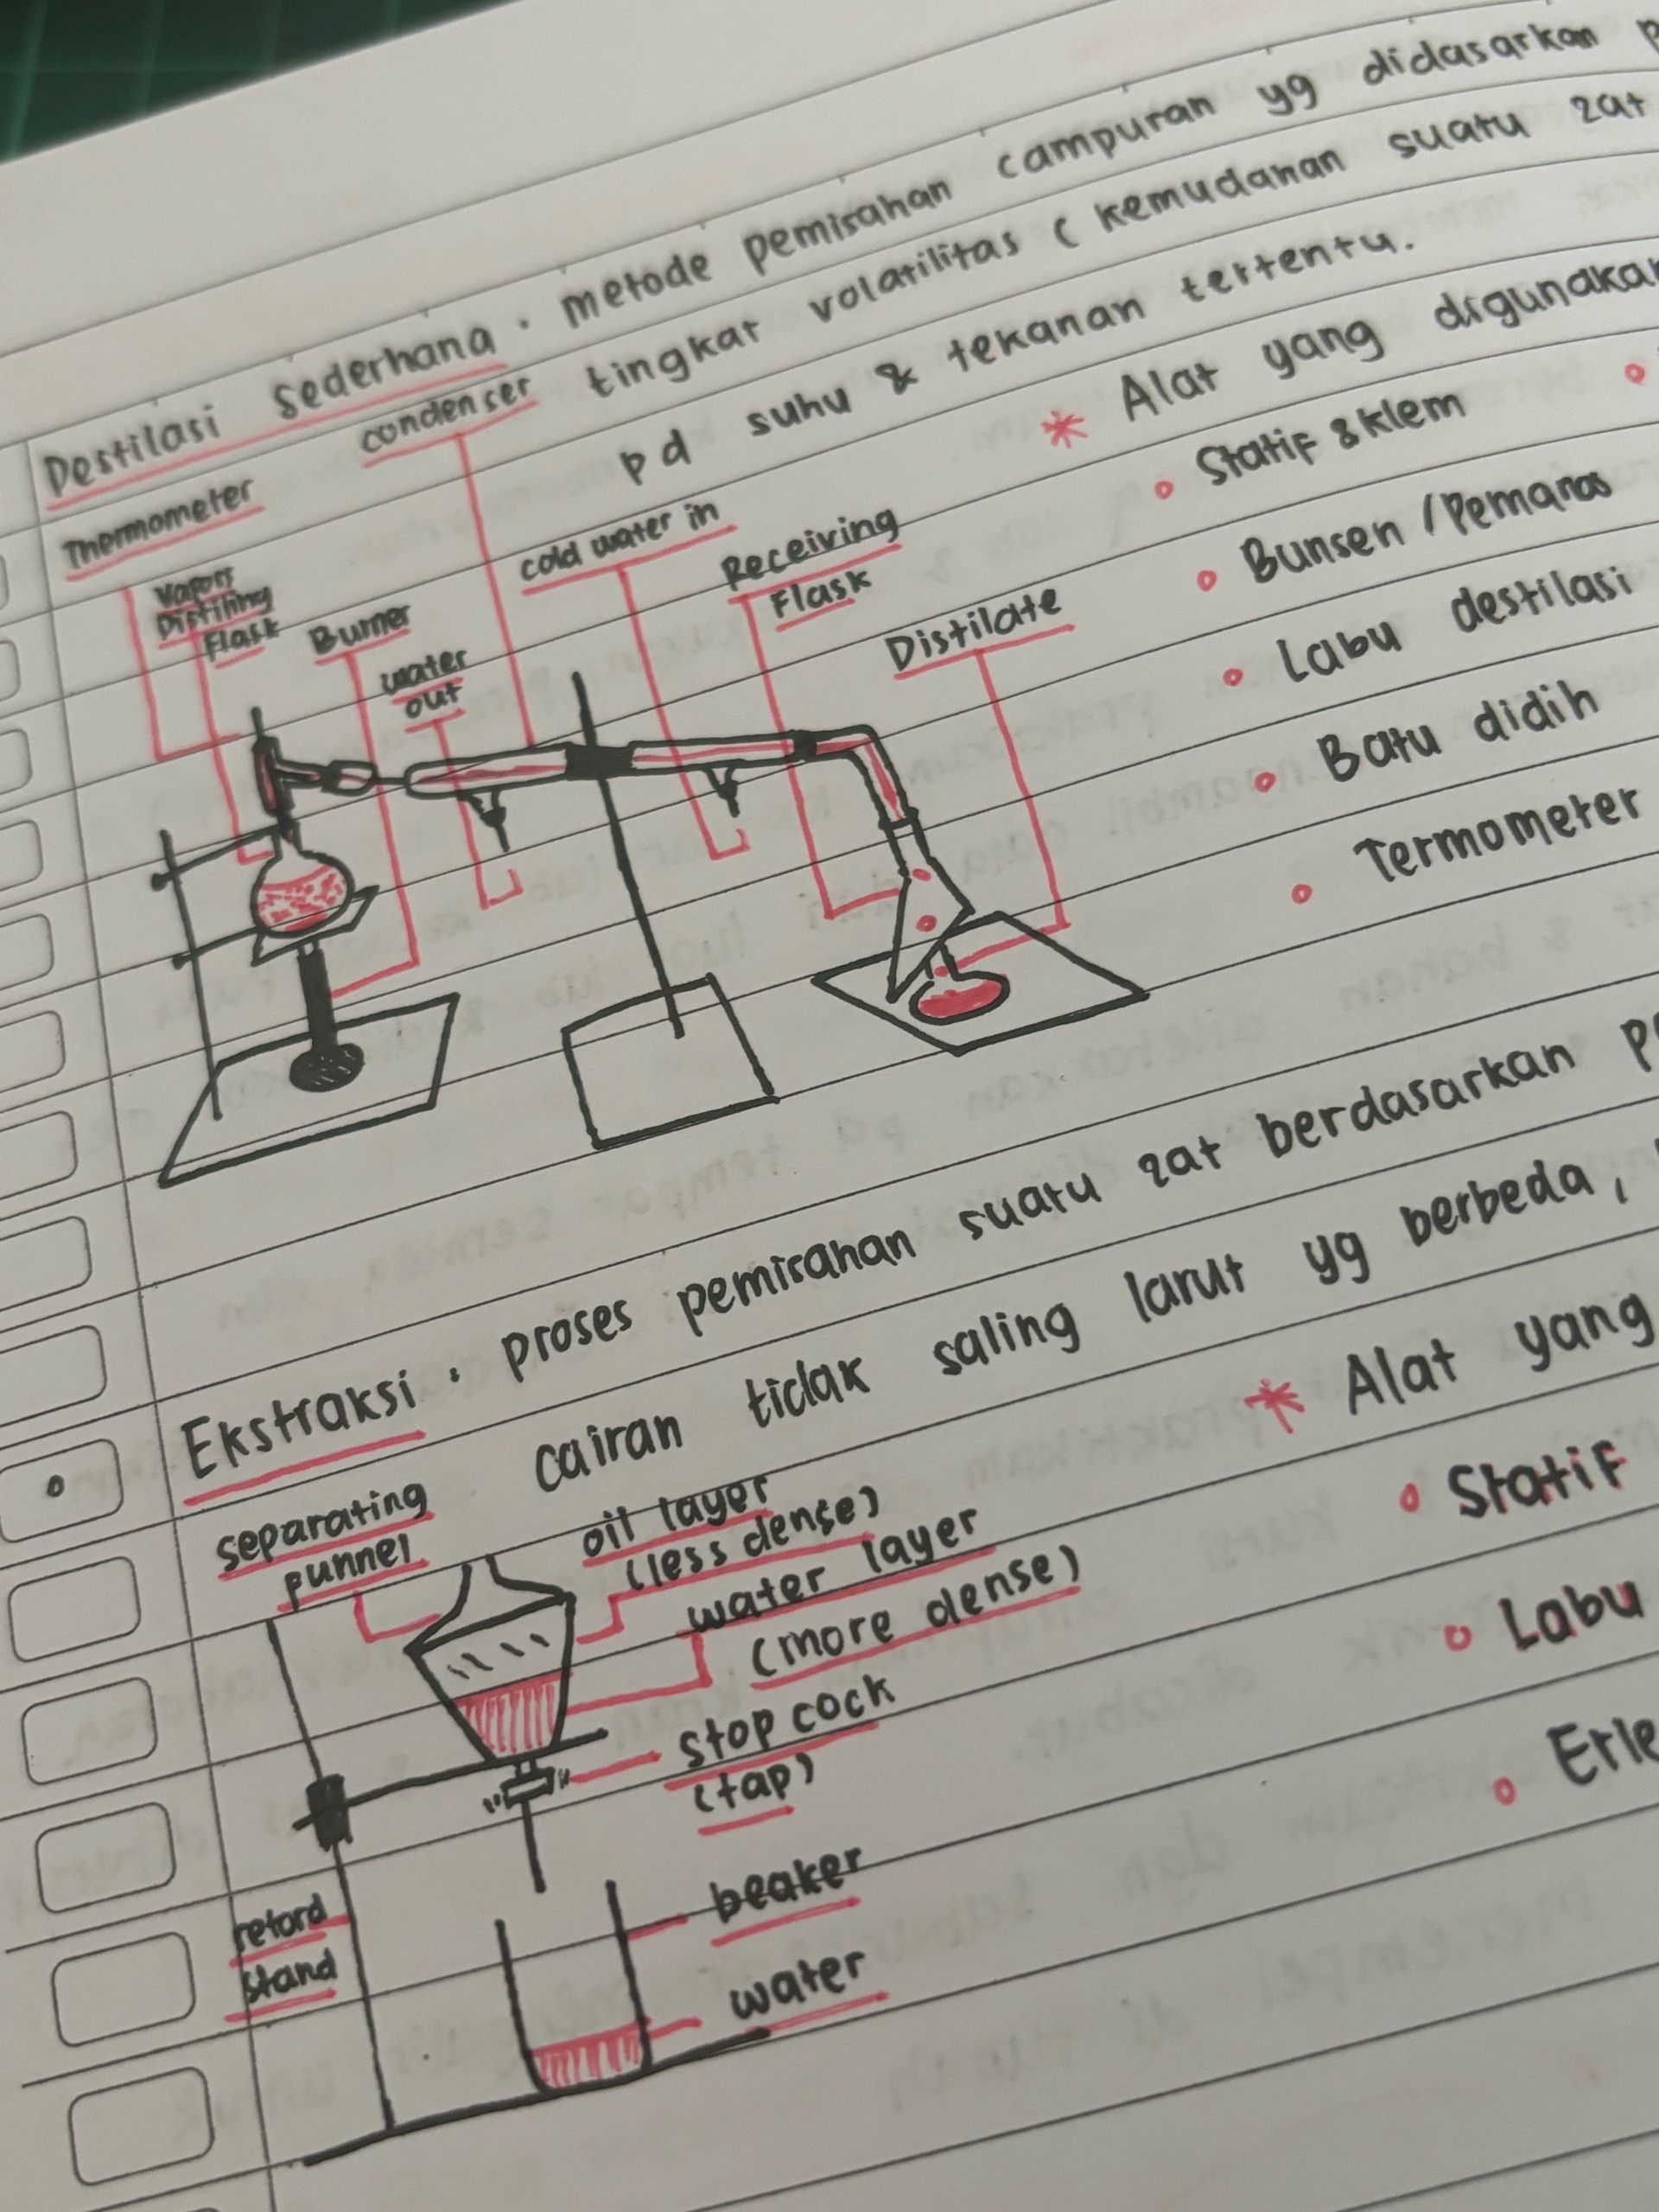 Destilasi sederhana. metode pemisahan campuran yg didasarkan
condenser tingkat volatilitas ( kemudahan suatu zat
pd suhu & tekanan tertentu.
Thermometer
Vapors
Distiling
Flask
Burner
water
out
cold water in
Receiving
Flask
Distilate
* Alat yang digunakan
Statif & klem
Bunsen / Pemanas
Labu destilasi
Batu didih
Termometer
Ekstraksi. proses pemisahan suatu zat berdasarkan
cairan tidak saling larut yg berbeda,
separating
punnel
oil layer
(less dense)
water layer
(more dense)
stop cock
(tap)
beaker
water
retord
stand
* Alat yang
Statif
Labu
Erle